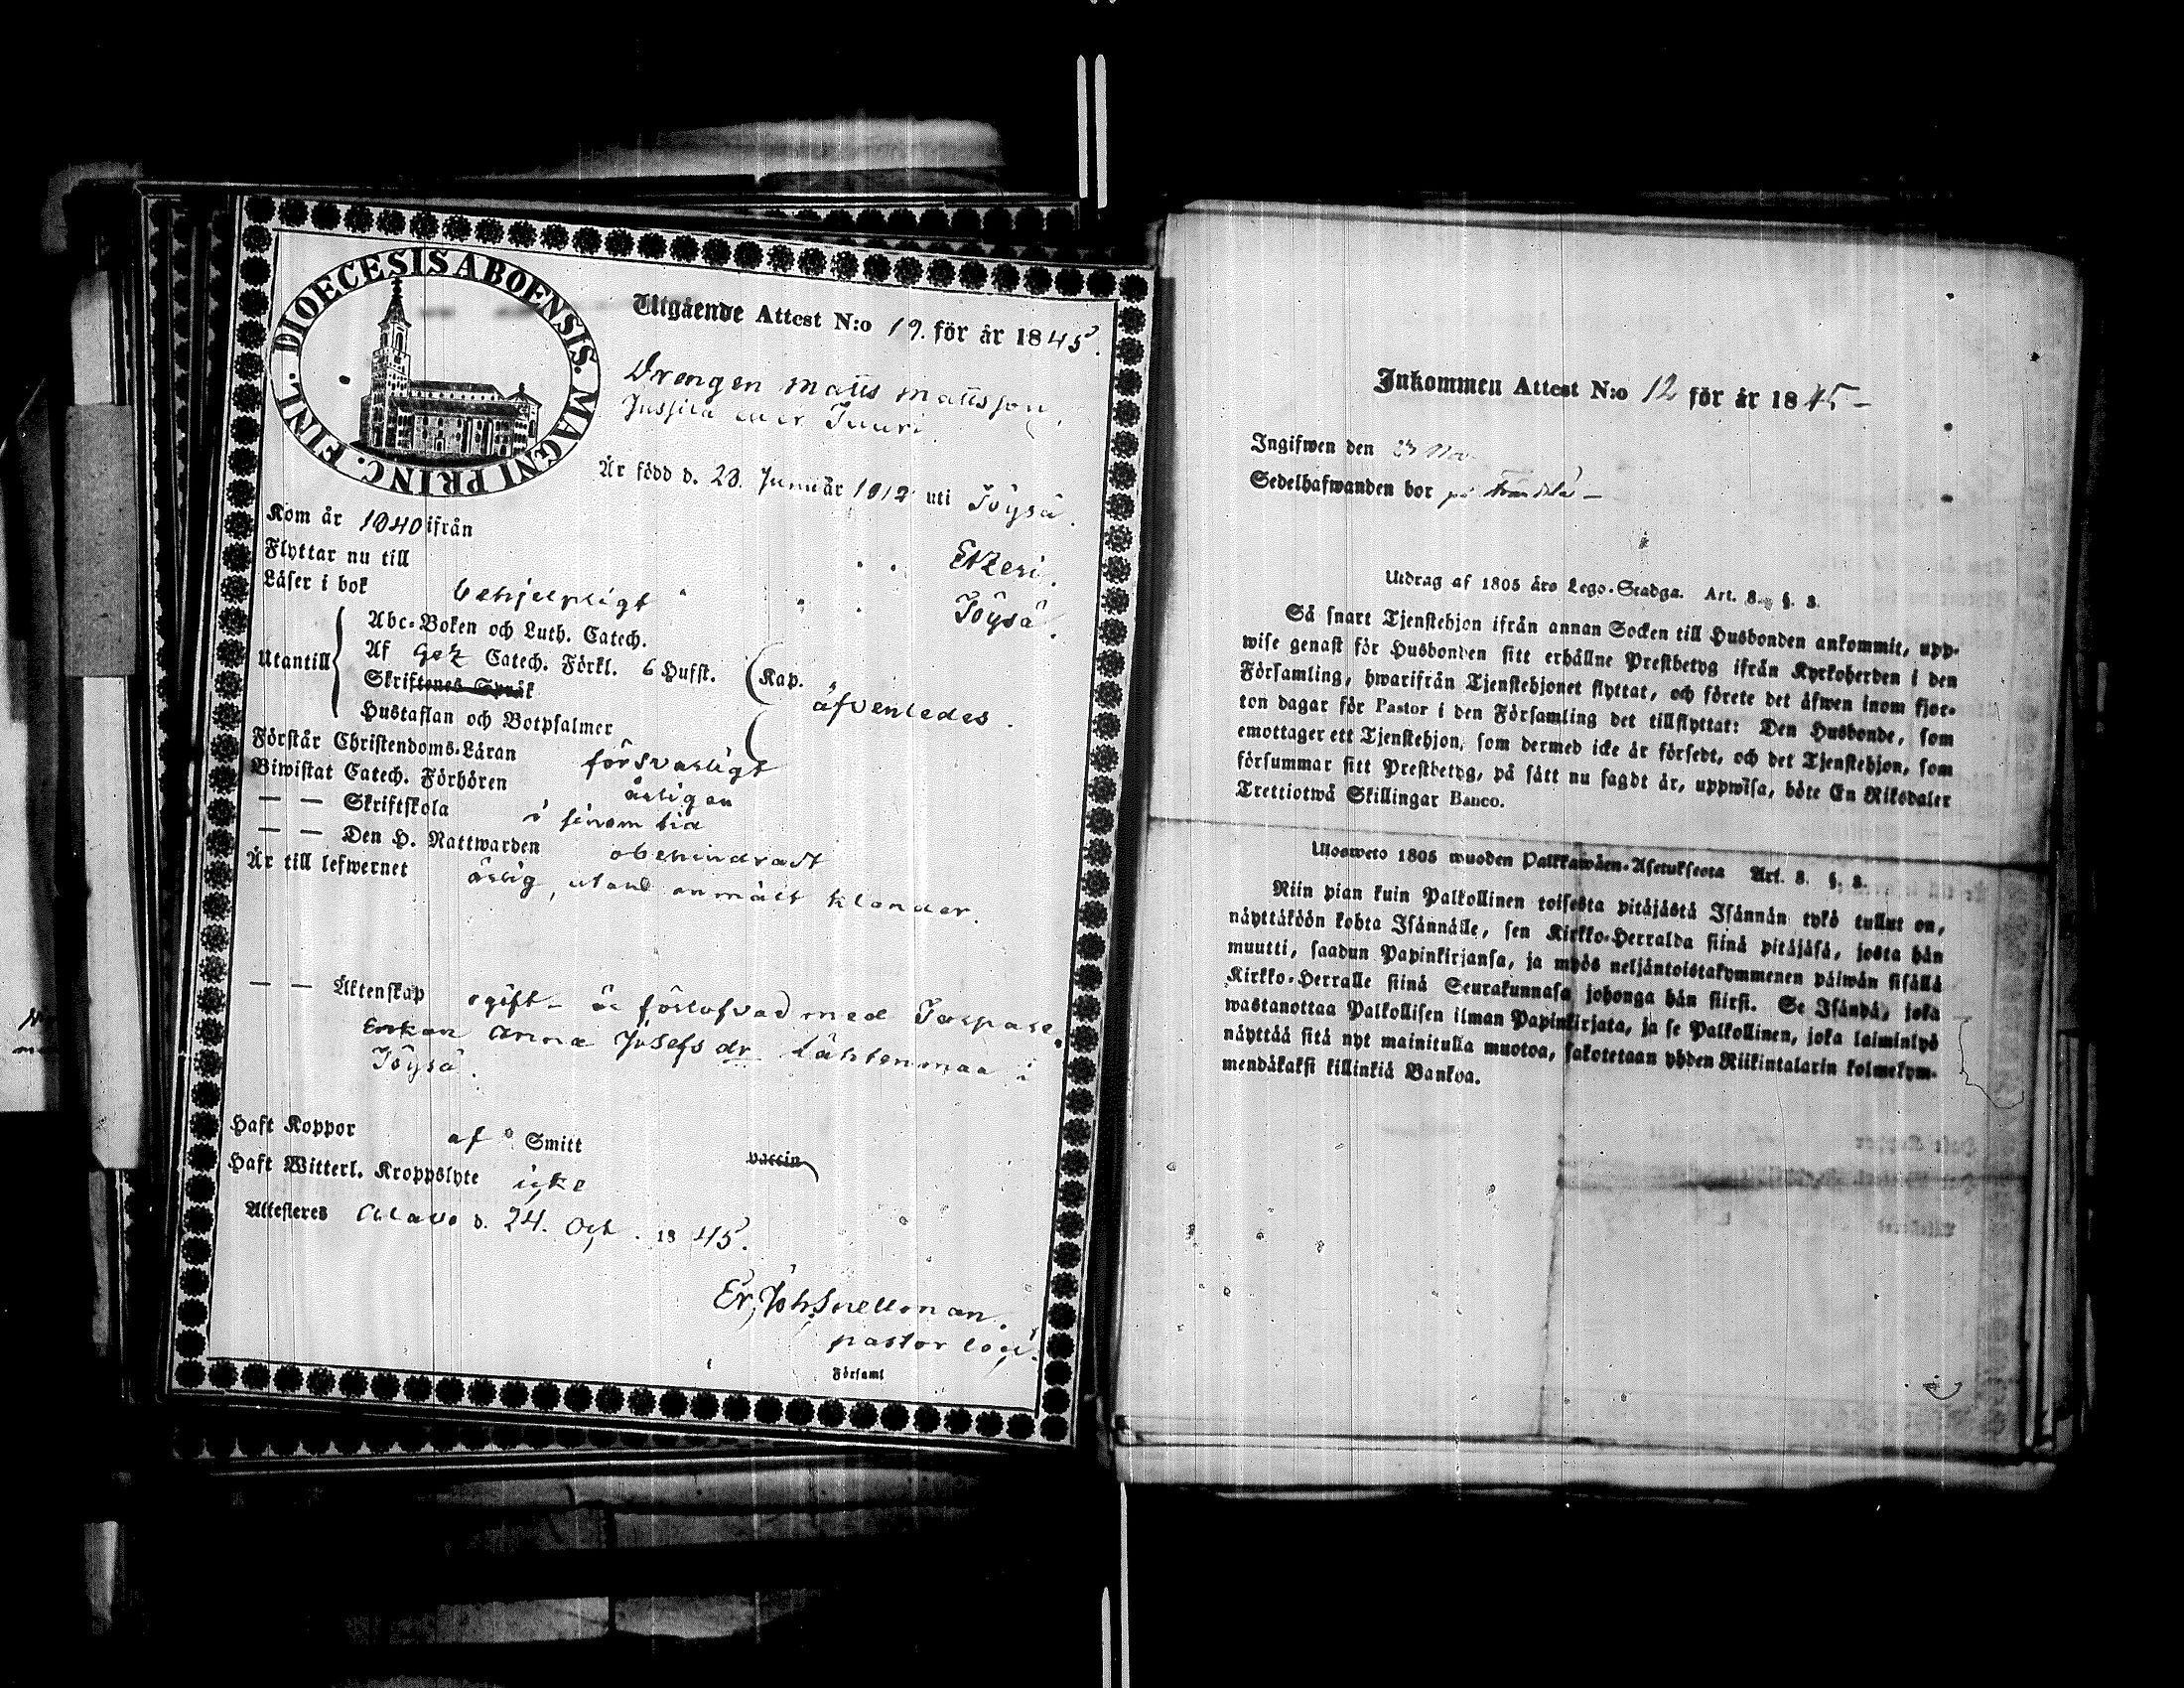 DIOECESIS ABOENSIS. MAGNI PRINC. FINL.
Utgående Attest N:o 19. för år 1845.
Drengen Matts Mattsson
Jussila eller Juuri
Är född d. 23. Januär 1812 uti Töysä.
Kom år 1840 ifrån Etzeri.
Flyttar nu till Töysä.
Läser i bok behjelpligt
Abc-Boken och Luth. Catech.
Utantill Af Gez Catech. Förkl. 6 Hufst. Kap. äfvenledes.
Skriftenes Språk
Hustaflan och Botpsalmer
Förstår Christendoms-Läran försvarligt
Biwistat Catech. Förhören årligen
— — Skriftskola i sinom tid
— — Den H. Nattwarden obehindradt
Är till lefwernet ärlig, utand anmält klander.
— — Äktenskap ogift är förlofvad med Torpare
Enkan Anna Josefs dr Lähtenmaa i
Töysä.
Haft Koppor af Smitt vaccin
Haft Witterl. Kroppslyte icke
Attesteres Alavo d. 24. Oct. 1845.
Er. Joh. Snellman.
pastor loci.
Församl
Inkommen Attest N:o 12 för år 1845 –
Ingifwen den 23 Nov
Sedelhafwanden bor på
Utdrag af 1805 års Lego-Stadga. Art. 8. §. 8.
Så snart Tjenstehjon ifrån annan Socken till Husbonden ankommit, upp-
wise genast för Husbonden sitt erhållne Prestbetyg ifrån Kyrkoherden i den
Församling, hwarifrån Tjenstehjonet flyttat, och förete det äfwen inom fjor-
ton dagar för Pastor i den Församling det tillflyttat: Den Husbonde, som
emottager ett Tjenstehjon, som dermed icke är försedt, och det Tjenstehjon, som
försummar sitt Prestbetyg, på sätt nu sagdt är, uppwisa, böte En Riksdaler
Trettiotwå Skillingar Banco.
Ulosweto 1805 wuoden Palkkawäen-Asetuksesta Art. 8. §. 8.
Niin pian kuin Palkollinen toisesta pitäjästä Isännän tykö tullut on,
näyttäköön kohta Isännälle, sen Kirkko-Herralda siinä pitäjäsä, josta hän
muutti, saadun Papinkirjansa, ja myös neljäntoistakymmenen päiwän sisällä
Kirkko-Herralle siinä Seurakunnasa johonga hän siirsi. Se Isändä, joka
wastanottaa Palkollisen ilman Papinkirjata, ja se Palkollinen, joka laiminlyö
näyttää sitä nyt mainitulla muotoa, sakotetaan yhden Riikintalarin kolmekym-
mendäkaksi killinkiä Bankoa.